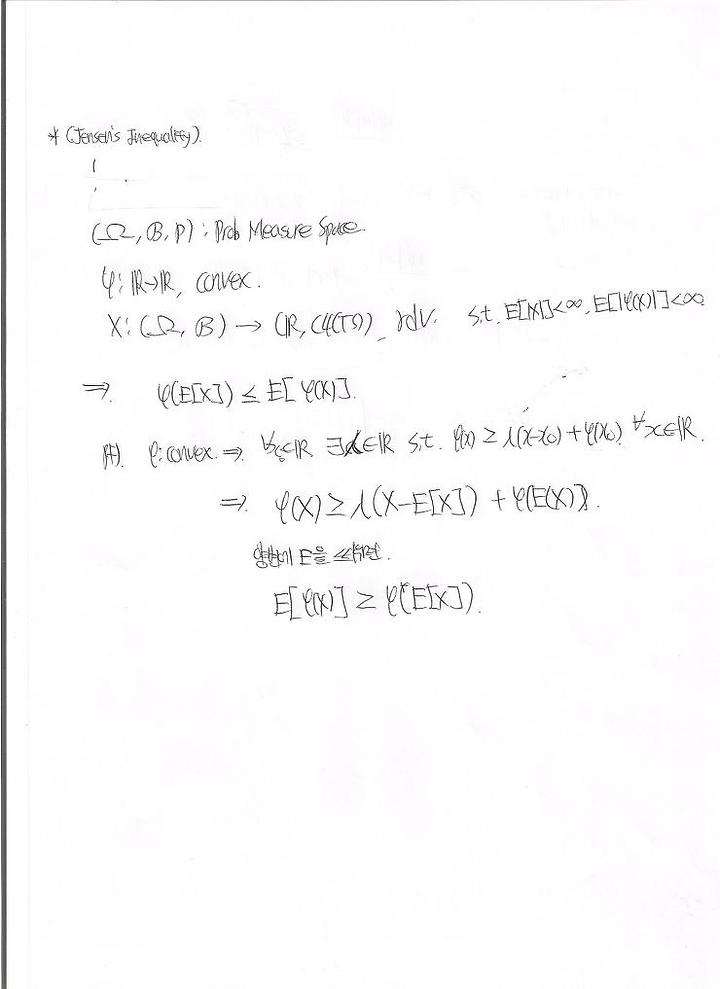 * (Jensen's Inequality).
(Ω, B, P) : Prob Measure Space
φ: ℝ→ℝ, convex.
X: (Ω, B) → (ℝ, ), r.v. s.t. E[|X|]<∞, E[|φ(X)|]<∞
⇒ φ(E[X]) ≤ E[φ(X)].
pf). φ: convex ⇒ ∀x₀∈ℝ ∃λ∈ℝ s.t. φ(x) ≥ λ(x-x₀)+φ(x₀) ∀x∈ℝ.
⇒ φ(X) ≥ λ(X-E[X]) + φ(E(X)).
양변에 E을 씌우면.
E[φ(X)] ≥ φ(E[X]).